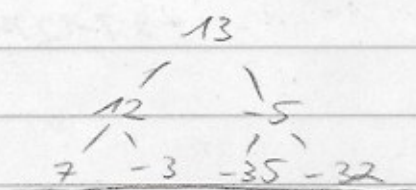 13
12 -5
7 -3 -35 -32